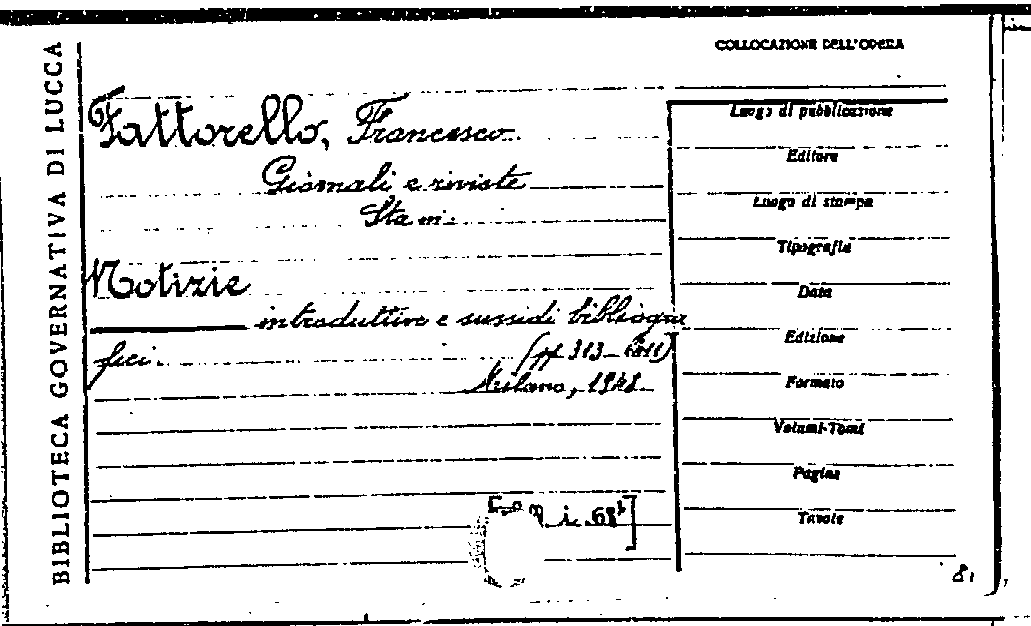 BIBLIOTECA GOVERNATIVA DI LUCCA
COLLOCAZIONE DELL'OPERA
Fattorello, Francesco.
Giornali e riviste
Notizie
introduttive e sussidi bibliogra
fici.
(pp 313-
Milano, 1948
Luogo di pubblicazione
Editore
Luogo di stampa
Tipografia
Data
Edizione
Formato
Volumi-Tomi
Pagine
Tavole